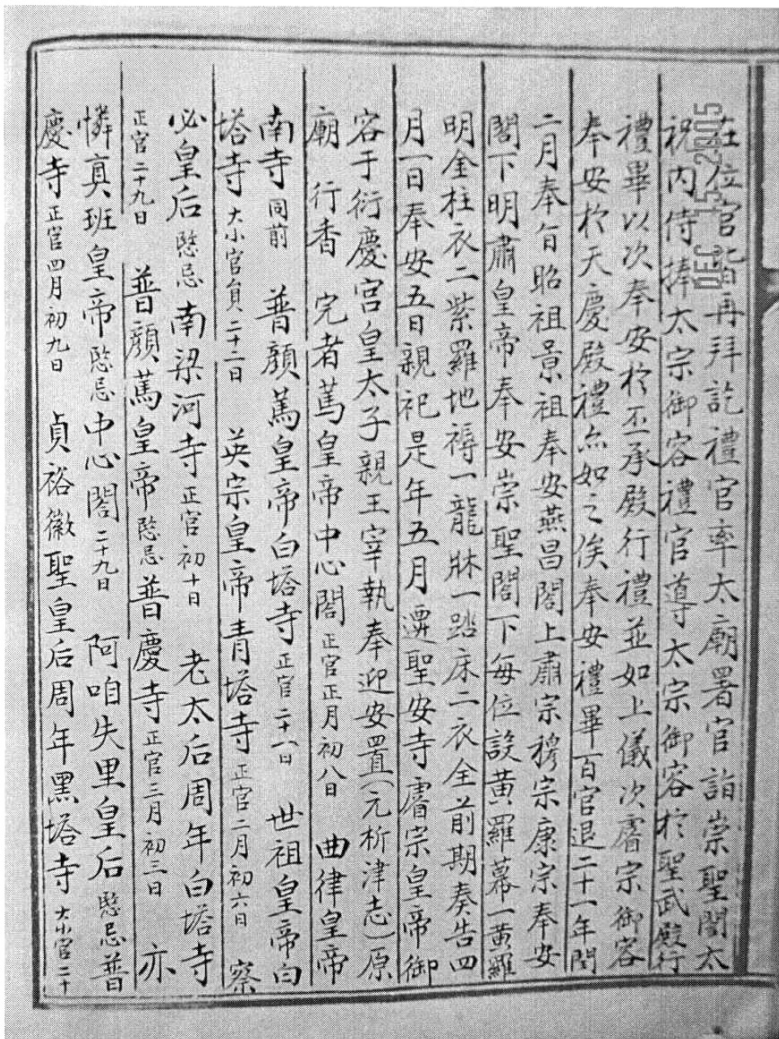 在位官皆再拜訖禮官率太廟署官詣崇聖閣太
祝內侍捧太宗御容禮官導太宗御容於聖武殿行
禮畢以次奉安於丕承殿行禮並如上儀次睿宗御容
奉安於天慶殿禮亦如之俟奉安禮畢百官退二十一年閏
二月奉旨昭祖景祖奉安燕昌閣上肅宗穆宗康宗奉安
閣下明肅皇帝奉安崇聖閣下每位設黃羅幕一黃羅
明金柱衣二紫羅地褥一龍牀一踏床二衣全前期奏告四
月一日奉安五日親祀是年五月遷聖安寺睿宗皇帝御
容于衍慶宮皇太子親王宰執奉迎安置(元析津志)原
廟 行香 完者篤皇帝中心閣 正官正月初八日 曲律皇帝
南寺 同前 普顏篤皇帝白塔寺 正官二十一日 世祖皇帝白
塔寺 大小官員二十二日 英宗皇帝青塔寺 正官二月初六日 察
必皇后 愍忌 南梁河寺 正官初十日 老太后周年白塔寺
正官二十九日 普顏篤皇帝 愍忌 普慶寺 正官三月初三日 亦
憐真班皇帝 愍忌 中心閣 二十九日 阿咱失里皇后 愍忌 普
慶寺 正官四月初九日 貞裕徽聖皇后周年黑塔寺 大小官二十
DEC 15 2005